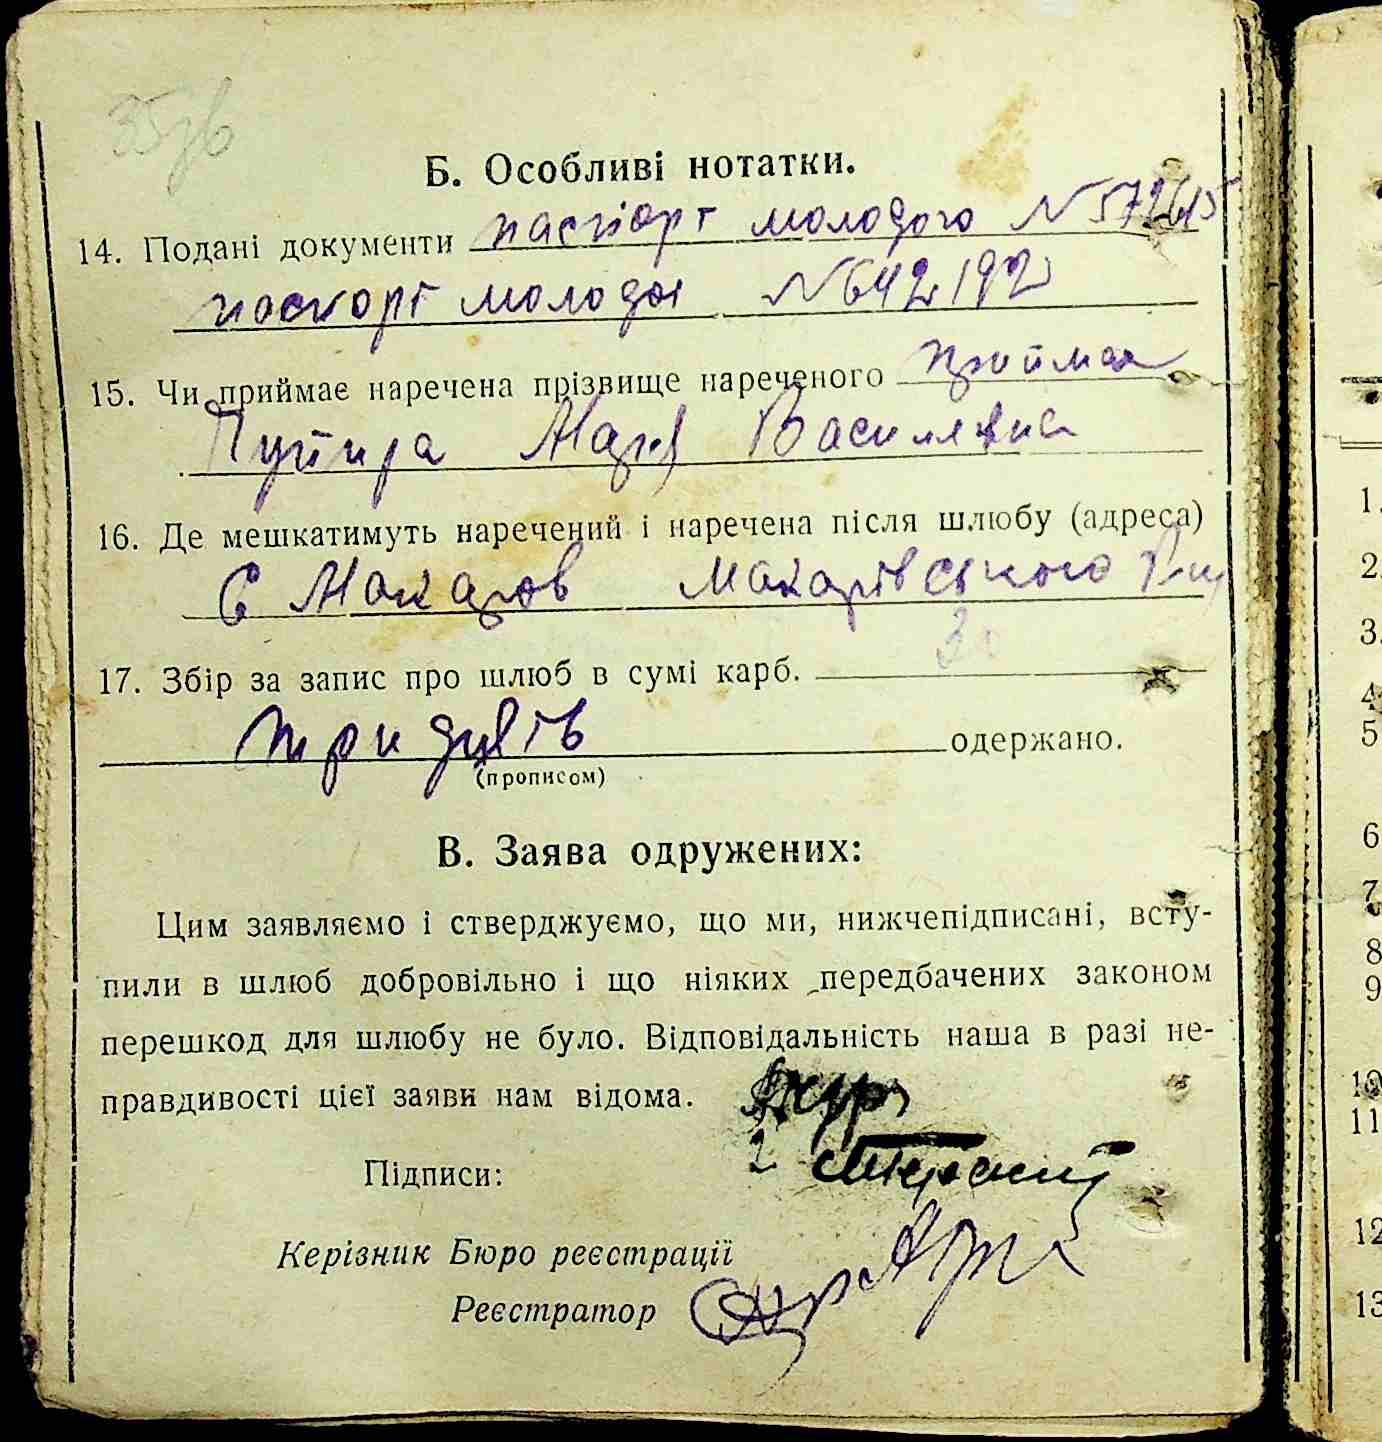 35зв
Б. Особливі нотатки.
14. Подані документи паспорт молодого №572615
паспорт молодої №642192
15. Чи приймає наречена прізвище нареченого приймає
Василівна
16. Де мешкатимуть наречений і наречена після шлюбу (адреса)
с Макарів Макарівського
30
17. Збір за запис про шлюб в сумі карб.
тридцять одержано.
(прописом)
В. Заява одружених:
Цим заявляємо і стверджуємо, що ми, нижчепідписані, всту-
пили в шлюб добровільно і що ніяких передбачених законом
перешкод для шлюбу не було. Відповідальність наша в разі не-
правдивості цієї заяви нам відома.
2
Підписи:
Керізник Бюро реєстрації
Реєстратор
1.
2.
3.
4
5
6
7.
8
9
10
11
12
13